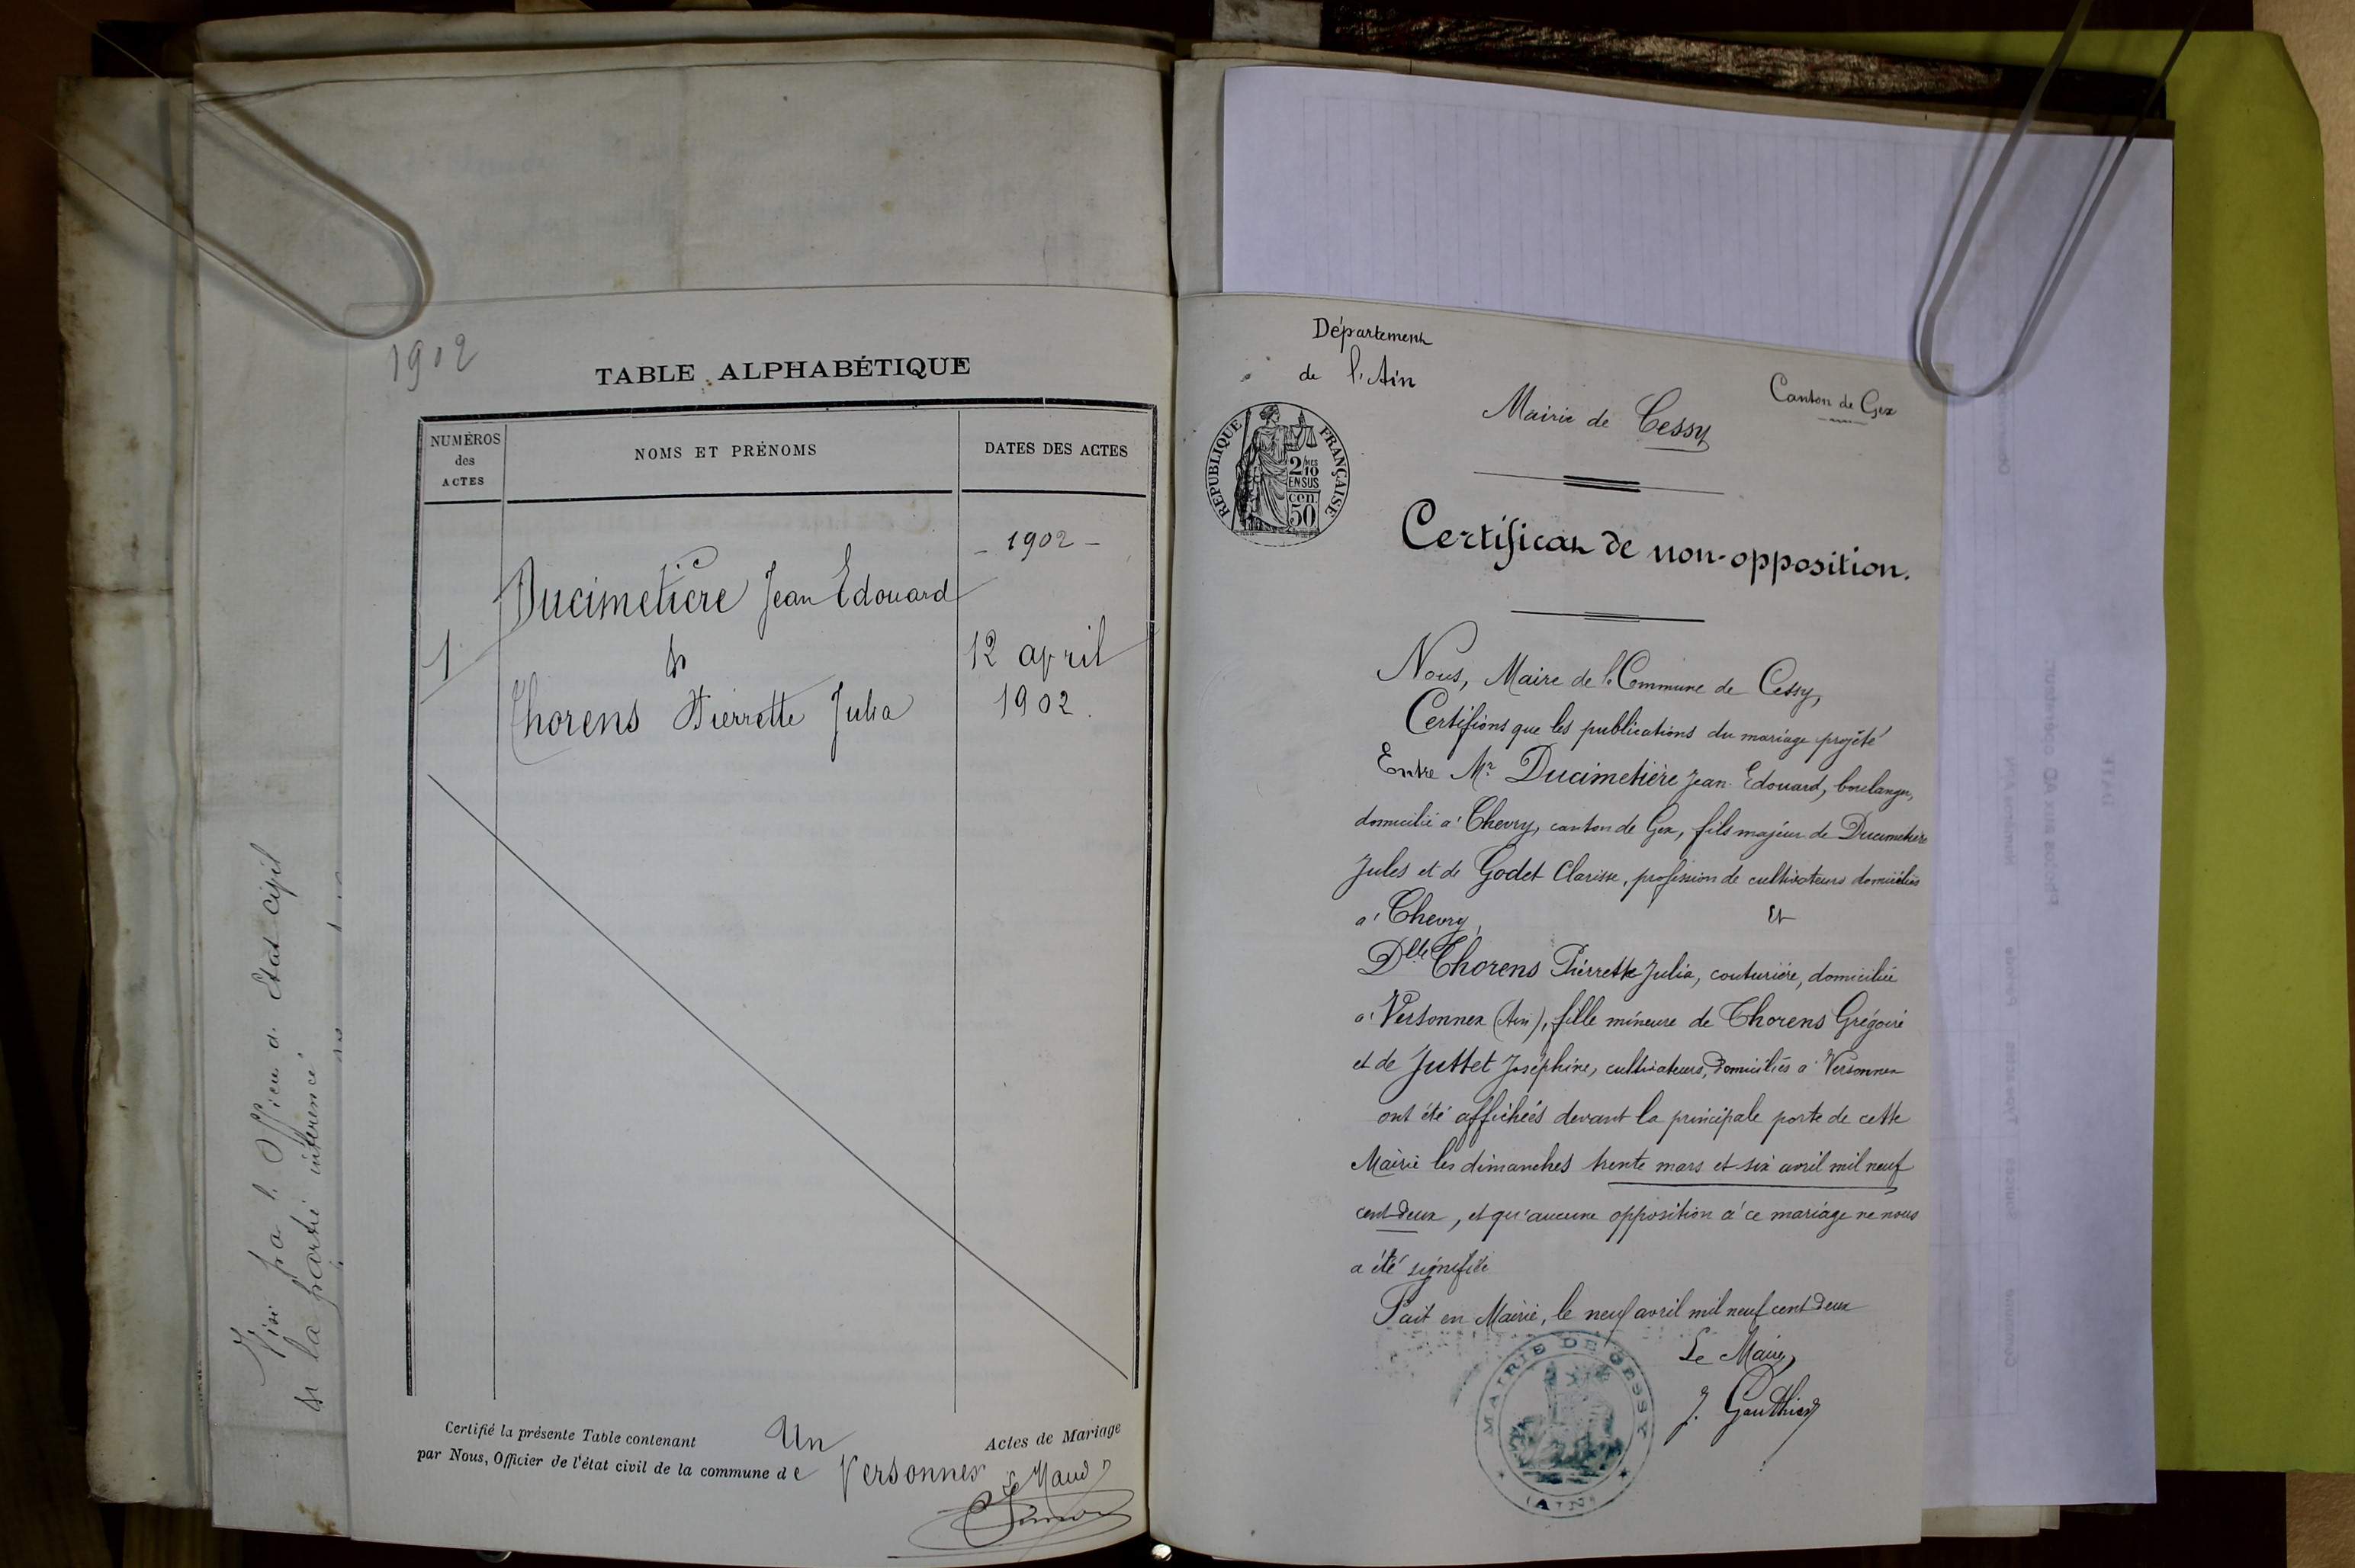 1902
TABLE ALPHABÉTIQUE
NUMÉROS
des
ACTES
NOMS ET PRÉNOMS
DATES DES ACTES
- 1902 -
Ducimetière Jean Edouard
1
et
12 april
Thorens Pierrette Julia
1902.
Certifié la présente Table contenant Un Actes de Mariage
par Nous, Officier de l'état civil de la commune de Versonnex
Visé pa l'
état civil
de la partie
Département
de l'Ain
Canton de Gex
Mairie de Cessy
RÉPUBLIQUE FRANÇAISE
2/10 MES
EN SUS
50 cen.
Certificat de non-opposition.
Nous, Maire de la Commune de Cessy,
Certifions que les publications du mariage projeté
Entre Mr Ducimetière Jean Edouard, boulanger,
domicilié à Chevry, canton de Gex, fils majeur de Ducimetière
Jules et de Godet Clarisse, profession de cultivateurs domiciliés
à Chevry, Et
Dlle Thorens Pierrette Julia, couturière, domiciliée
à Versonnex (Ain), fille mineure de Thorens Grégoire
et de Juttet Joséphine, cultivateurs, domiciliés à Versonnex
ont été affichées devant la principale porte de cette
Mairie les dimanches trente mars et six avril mil neuf
cent deux, et qu'aucune opposition à ce mariage ne nous
a été signifiée
Fait en Mairie, le neuf avril mil neuf cent deux
Le Maire,
J. Gauthier
MAIRIE DE CESSY
(AIN)